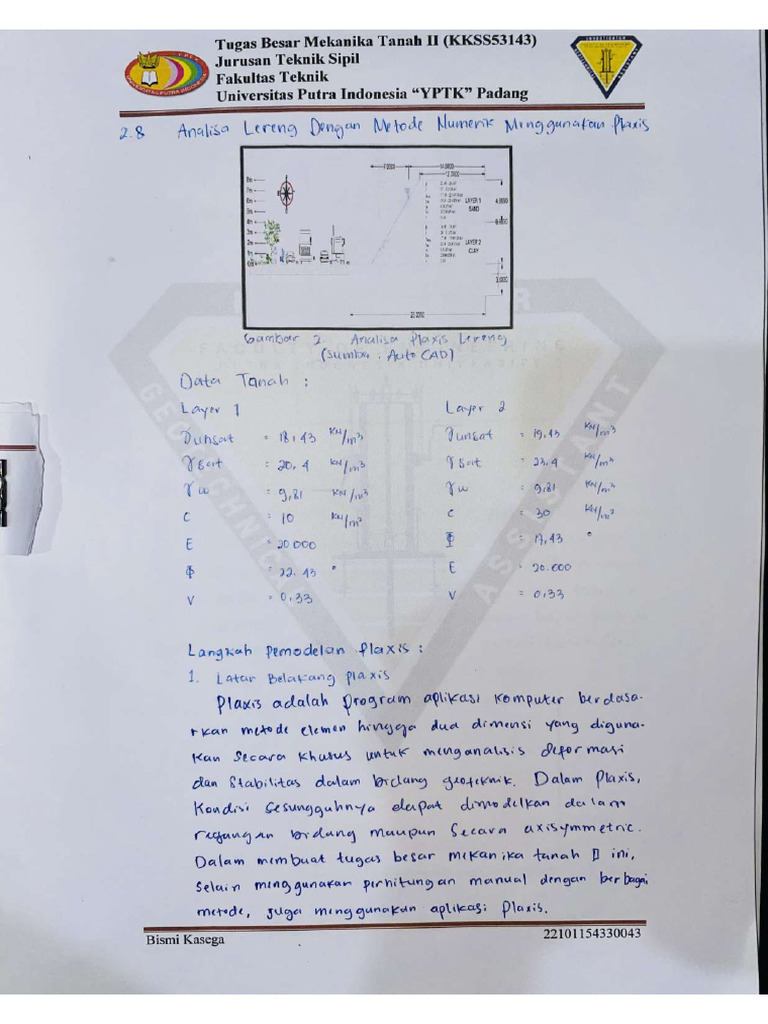 Tugas Besar Mekanika Tanah II (KKSS53143)
Jurusan Teknik Sipil
Fakultas Teknik
Universitas Putra Indonesia “YPTK” Padang
2.8 Analisa Lereng Dengan Metode Numerik Menggunakan Plaxis
7.0000 14.0000
12.0000
LAYER 1
SAND
4.0000
LAYER 2
CLAY
3.0000
Gambar 2. Analisa Plaxis Lereng
(Sumba : Auto CAD)
Data Tanah :
Layer 1 Layer 2
γunsat = 18,43 KN/m³ γunsat = 19,43 KN/m³
γsat = 20,4 KN/m³ γsat = 23,4 KN/m³
γw = 9,81 KN/m³ γw = 9,81 KN/m³
C = 10 KN/m² C = 30 KN/m²
E = 20000 Φ = 17,43 °
Φ = 22.43 ° E = 20.000
V = 0,33 V = 0,33
Langkah Pemodelan Plaxis :
1. Latar Belakang Plaxis
Plaxis adalah program aplikasi komputer berdasa-
rkan metode elemen hingga dua dimensi yang diguna-
kan secara khusus untuk menganalisis deformasi
dan stabilitas dalam bidang geoteknik. Dalam Plaxis,
kondisi sesungguhnya dapat dimodelkan dalam
regangan bidang maupun secara axisymmetric.
Dalam membuat tugas besar mekanika tanah II ini,
selain menggunakan perhitungan manual dengan berbagai
metode, juga menggunakan aplikasi Plaxis.
Bismi Kasega 22101154330043